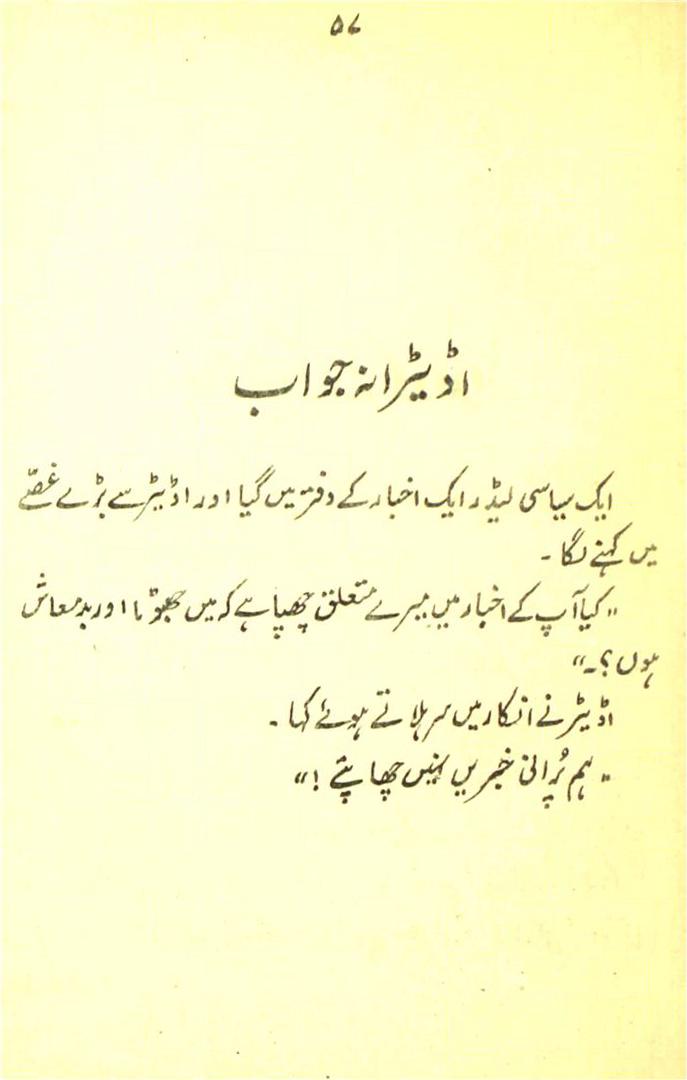 ۵۷
اڈیٹرانہ جواب
ایک سیاسی لیڈر ایک اخبار کے دفتر میں گیا اور اڈیٹر سے بڑے غصّے
میں کہنے لگا۔
"کیا آپ کے اخبار میں میرے متعلق چھپا ہے کہ میں جھوٹا اور بدمعاش
ہوں؟۔"
اڈیٹر نے انکار میں سر ہلاتے ہوئے کہا۔
"ہم پُرانی خبریں نہیں چھاپتے!"